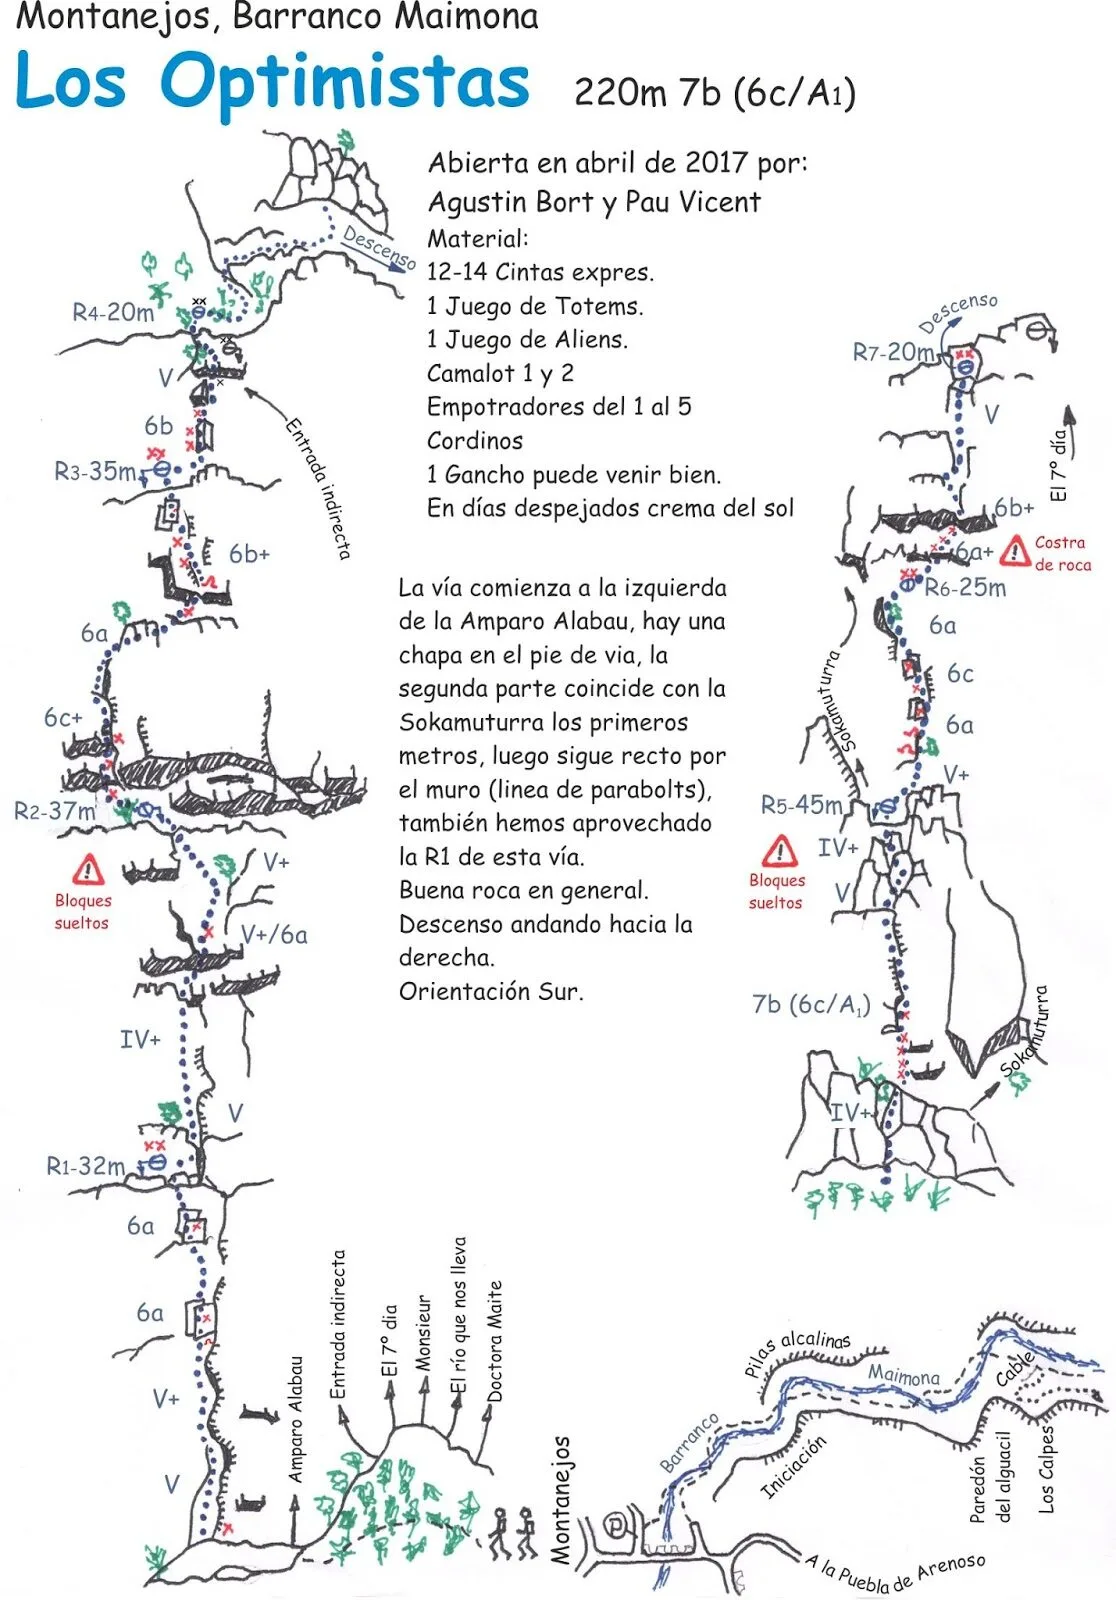 Montanejos, Barranco Maimona
Los Optimistas 220m 7b (6c/A1)
Abierta en abril de 2017 por:
Agustin Bort y Pau Vicent
Material:
12-14 Cintas expres.
1 Juego de Totems.
1 Juego de Aliens.
Camalot 1 y 2
Empotradores del 1 al 5
Cordinos
1 Gancho puede venir bien.
En días despejados crema del sol
La vía comienza a la izquierda
de la Amparo Alabau, hay una
chapa en el pie de via, la
segunda parte coincide con la
Sokamuturra los primeros
metros, luego sigue recto por
el muro (linea de parabolts),
también hemos aprovechado
la R1 de esta vía.
Buena roca en general.
Descenso andando hacia la
derecha.
Orientación Sur.
Descenso
R4-20m
V
6b
R3-35m
Entrada indirecta
6b+
6a
6c+
R2-37m
V+
Bloques
sueltos
V+/6a
IV+
V
R1-32m
6a
6a
V+
V
Amparo Alabau
Entrada indirecta
El 7º dia
Monsieur
El río que nos lleva
Doctora Maite
Descenso
R7-20m
V
El 7º día
6b+
6a+
Costra
de roca
R6-25m
6a
6c
Sokamuturra
6a
V+
R5-45m
IV+
Bloques
sueltos
V
7b (6c/A1)
Sokamuturra
IV+
Pilas alcalinas
Maimona
Cable
Barranco
Iniciación
Paredón
del alguacil
Los Calpes
Montanejos
P
A la Puebla de Arenoso